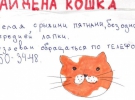 НАЙМЕНА КОШКА
белая с рыжими пятнами, без одной
передней лапки.
обращаться по телефону
50-39-48